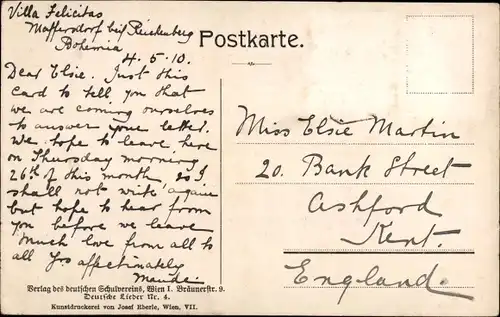 Villa Felicitas
Maffersdorf bei Reichenberg
Bohemia
4.5.10.
Dear Elsie. Just this
card to tell you that
we are coming ourselves
to answer your letter.
We hope to leave here
on Thursday morning
26th of this month so I
shall not write again
but hope to hear from
you before we leave
Much love from all to
all Yrs affectionately
Maude.
Verlag des deutschen Schulvereins, Wien I. Bräunerstr. 9.
Deutsche Lieder Nr. 4.
Kunstdruckerei von Josef Eberle, Wien, VII.
Postkarte.
Miss Elsie Martin
20. Bank Street
Ashford
Kent.
England.